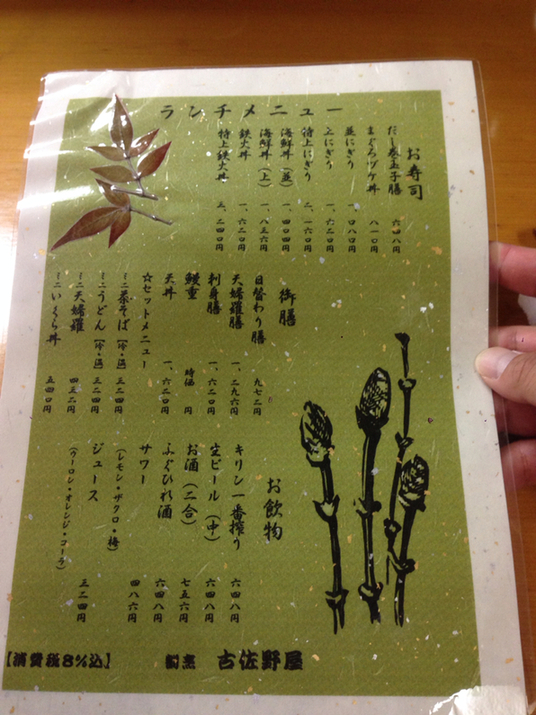 ランチメニュー
お寿司
だし巻玉子膳 六四八円
まぐろヅケ丼 八一〇円
並にぎり 一、〇八〇円
上にぎり 一、六二〇円
特上にぎり 二、一六〇円
海鮮丼(並) 一、四〇四円
海鮮丼(上) 一、八三六円
鉄火丼 一、六二〇円
特上鉄火丼 三、二四〇円
御膳
日替わり膳 九七二円
天婦羅膳 一、二九六円
刺身膳 一、六二〇円
鰻重 時価 円
天丼 一、六二〇円
☆セットメニュー
ミニ茶そば〔冷・温〕 三二四円
ミニうどん〔冷・温〕 三二四円
ミニ天婦羅 四三二円
ミニいくら丼 五四〇円
お飲物
キリン一番搾り 六四八円
生ビール(中) 六四八円
お酒(二合) 七五六円
ふぐひれ酒 六四八円
サワー 四八六円
(レモン・ザクロ・梅)
ジュース 三二四円
(ウーロン・オレンジ・コーラ)
割烹 古佐野屋
【消費税8%込】